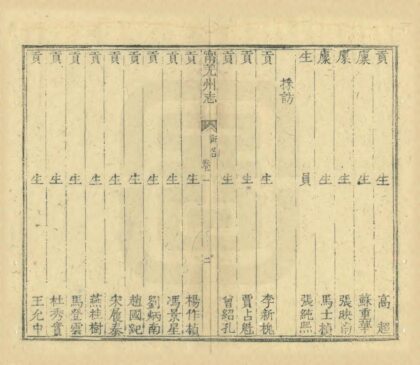 貢生高超
廩生蘇重華
廩生張映
廩生馬士楨
生員張純熙
採訪
貢生李新槐
貢生賈占魁
貢生曾紹孔
甯羌州志 銜名 卷一 二
貢生楊作楨
貢生馮景星
貢生劉炳南
貢生趙國
貢生宋
貢生燕桂樹
貢生馬登雲
貢生杜秀實
貢生王允中